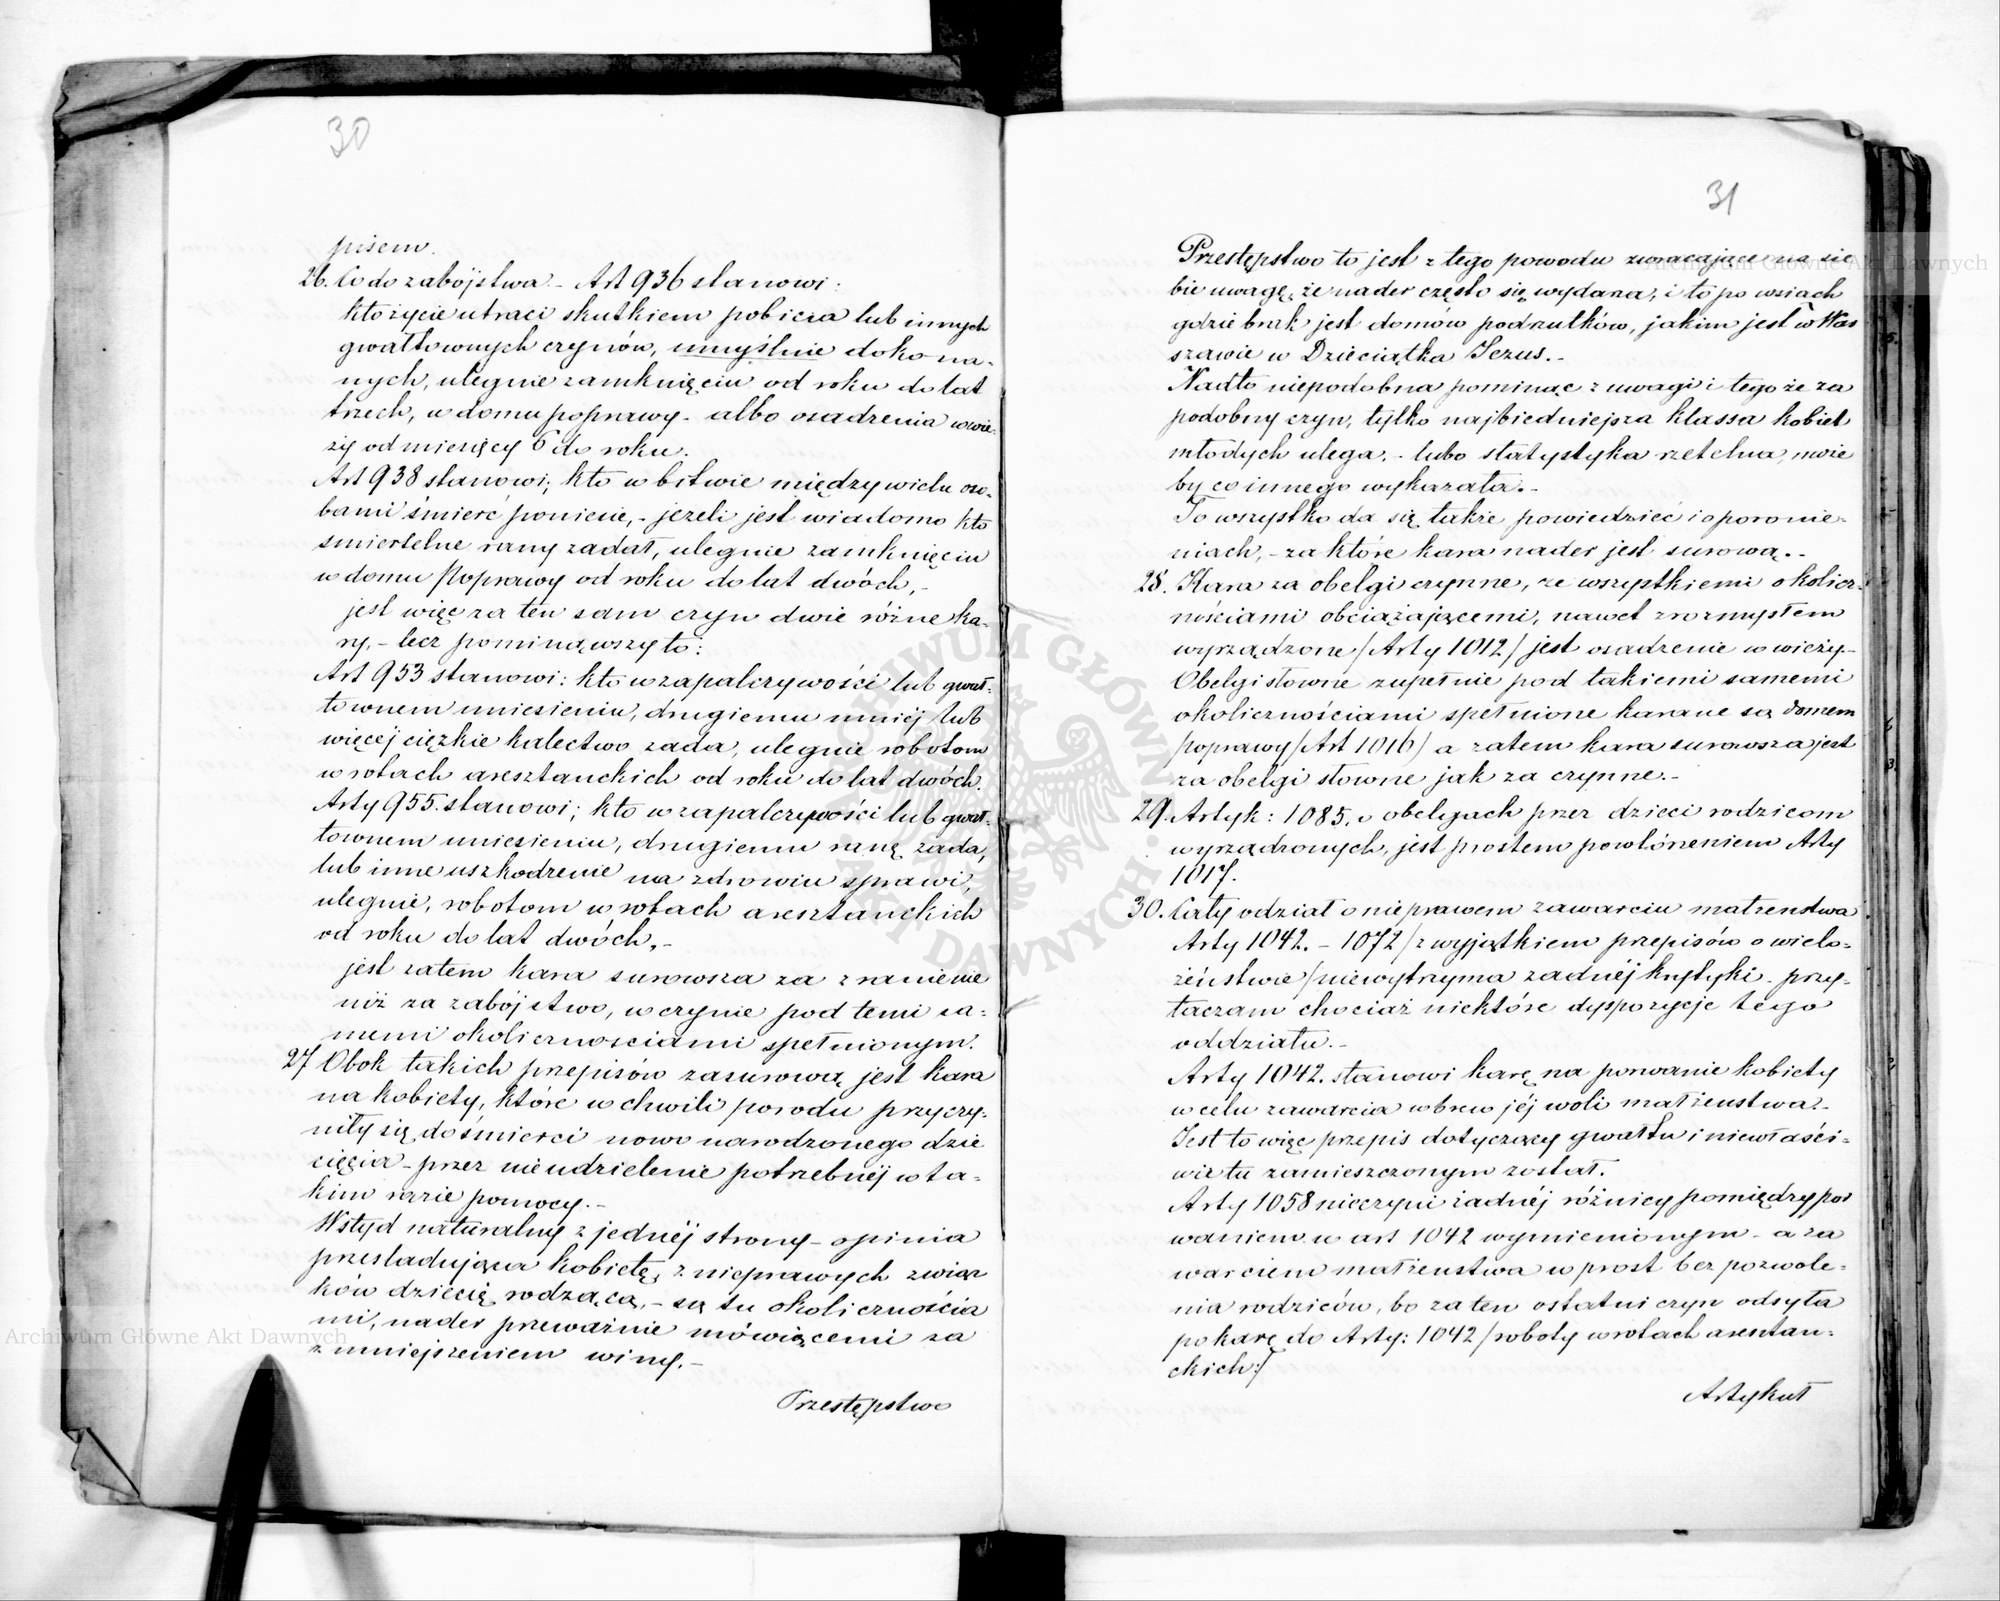 30
pisem.
26. Co do zabójstwa – Art 936 stanowi:
kto życie utraci skutkiem pobicia lub innych
gwałtownych czynów, umyślnie dokona-
nych, ulegnie zamknięciu od roku do lat
trzech, w domu poprawy – albo osadzenia w wie-
ży od miesięcy 6 do roku.
Art 938 stanowi; kto w bitwie między wielu oso-
bami śmierć poniesie, – jeżeli jest wiadomo kto
śmiertelne rany zadał, ulegnie zamknięciu
w domu Poprawy od roku do lat dwóch, –
jest więc za ten sam czyn dwie różne ka-
ry, – lecz pominąwszy to:
Art 953 stanowi: kto w zapalczywości lub gwał-
townem uniesieniu, drugiemu mniej lub
więcej ciężkie kalectwo zada, ulegnie robotom
w rotach aresztanckich od roku do lat dwóch.
Arty 955. stanowi; kto w zapalczywości lub gwał-
townem uniesieniu, drugiemu ranę zada,
lub inne uszkodzenie na zdrowiu sprawi,
ulegnie, robotom w rotach aresztanckich
od roku do lat dwóch, –
jest zatem kara surowsza za zranienie
niż za zabójstwo, w czynie pod temi sa-
memi okolicznosciami spełnionym.
27 Obok takich przepisów zasurową jest kara
na kobiety, które w chwili porodu przyczy-
niły się do śmierci nowo narodzonego dzie
cięcia – przez nieudzielenie potrzebnéj w ta-
kim razie pomocy. –
Wstyd naturalny z jednéj strony – opinia
prześladująca kobietę, z nieprawych związ
ków dziecię rodzącą, – są tu okolicznościa
mi, nader przeważnie mówiącemi za
zmniejszeniem winy. –
Przestępstwo
31
Przestępstwo to jest z tego powodu zwracające na sie
bie uwagę, że nader często się wydarza, i to po wsiach
gdzie brak jest domów podrzutków, jakim jest w War
szawie w Dzieciątka Jezus. –
Nadto niepodobna pominąć z uwagi i tego że za
podobny czyn, tylko najbiedniejsza klassa kobiet
młodych ulega. – lubo statystyka rzetelna, może
by co innego wykazała. –
To wszystko da się także powiedzieć i o poronie-
niach, – za które kara nader jest surową. –
28. Kara za obelgi czynne, ze wszystkiemi okolicz-
nościami obciążającemi, nawet z rozmysłem
wyrządzone /Arty 1012/ jest osadzenie w wieży –
Obelgi słowne zupełnie pod takiemi samemi
okolicznościami spełnione karane są domem
poprawy /Art 1016/ a zatem kara surowsza jest
za obelgi słowne jak za czynne. –
29. Artyk: 1085. o obelgach przez dzieci rodzicom
wyrządzonych, jest prostem powtórzeniem Arty
1017.
30. Cały odział o nieprawem zawarciu małżenstwa
Arty 1042. – 1072 /z wyjątkiem przepisów o wielo-
żeństwie/ niewytrzyma żadnéj krytyki – przy-
taczam chociaż niektóre dyspozycje tego
oddziału. –
Arty 1042. stanowi karę na porwanie kobiety
w celu zawarcia wbrew jéj woli małżenstwa. –
Jest to więc przepis dotyczący gwałtu i niewłaści-
wie tu zamieszczonym został.
Arty 1058 nieczyni żadnéj różnicy pomiędzy por
waniem w art 1042 wymienionym – a za
warciem małżenstwa wprost bez pozwole-
nia rodziców, bo za ten ostatni czyn odsyła
po karę do Arty: 1042 /roboty w rotach aresztan-
ckich:/
Artykuł
ARCHIWUM GŁÓWNE AKT DAWNYCH
Archiwum Główne Akt Dawnych
Archiwum Główne Akt Dawnych